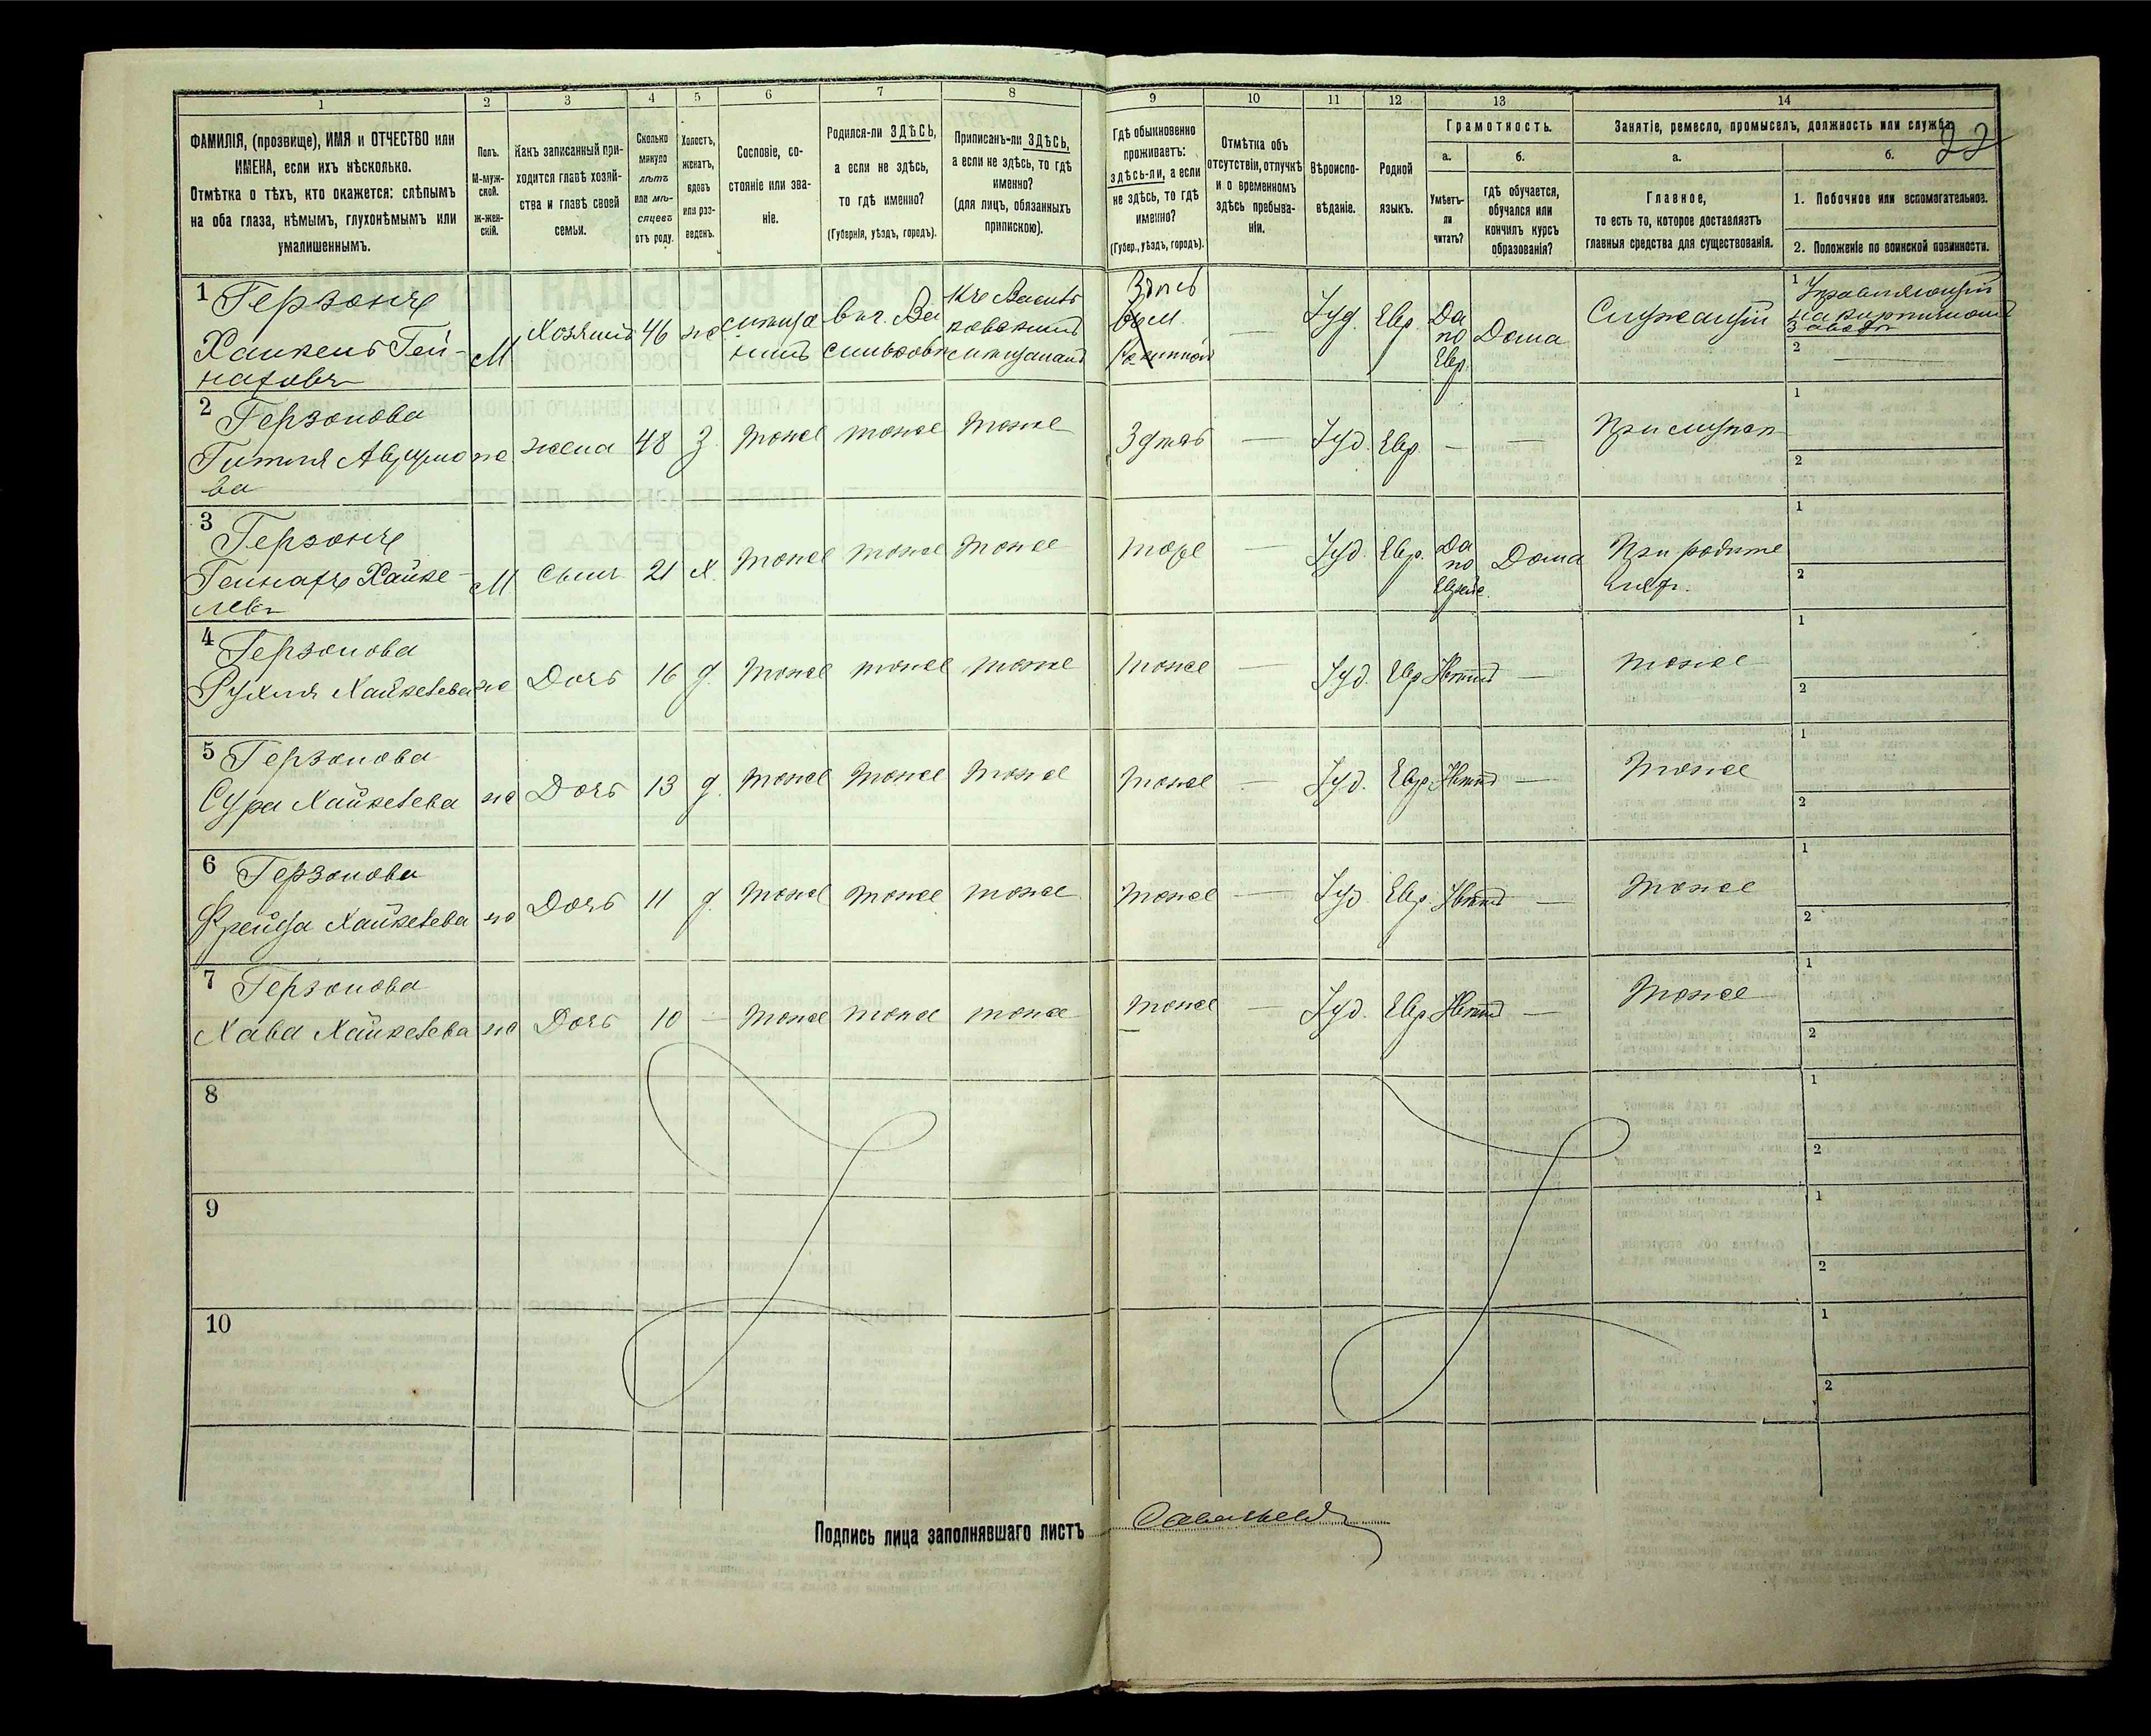 1 2 3 4 5 6 7 8 9 10 11 12 13 14
ФАМИЛІЯ, (прозвище), ИМЯ и ОТЧЕСТВО или
ИМЕНА, если ихъ нѣсколько.
Отмѣтка о тѣхъ, кто окажется: слѣпымъ
на оба глаза, нѣмымъ, глухонѣмымъ или
умалишеннымъ.
Полъ.
М-муж-
ской.
Ж-жен-
скій.
Какъ записанный при-
ходится главѣ хозяй-
ства и главѣ своей
семьи.
Сколько
минуло
лѣтъ
или мѣ-
сяцевъ
отъ роду.
Холостъ,
женатъ,
вдовъ
или раз-
веденъ.
Сословіе, со-
стояніе или зва-
ніе.
Родился-ли ЗДѢСЬ,
а если не здѣсь,
то гдѣ именно?
(Губернія, уѣздъ, городъ).
Приписанъ-ли ЗДѢСЬ,
а если не здѣсь, то гдѣ
именно?
(для лицъ, обязанныхъ
припискою).
Гдѣ обыкновенно
проживаетъ:
здѣсь-ли, а если
не здѣсь, то гдѣ
именно?
(Губер., уѣздъ, городъ).
Отмѣтка объ
отсутствіи, отлучкѣ
и о временномъ
здѣсь пребыва-
ніи.
Вѣроиспо-
вѣданіе.
Родной
языкъ.
Грамотность.
а.
Умѣетъ-
ли
читать?
б.
Гдѣ обучается,
обучался или
кончилъ курсъ
образованія?
Занятіе, ремесло, промыселъ, должность или служба.
22
а.
Главное,
то есть то, которое доставляетъ
главныя средства для существованія.
б.
1. Побочное или вспомогательное.
2. Положеніе по воинской повинности.
1 Герзонъ
Хаикель Гей-
наховъ
М Хозяинъ 46 ж
Здѣсь
Іуд. Евр. Да
по
Евр.
Дома
Служащій
1 Управляющій
на кирпичномъ
заводѣ
2
2 Герзонова
Гитля
ж жена 48 З тоже тоже тоже
Здѣсь — Іуд. Евр. — —
1
2
3 Герзонъ
Гейнахъ Хайке-
левъ
М Сынъ 21 Х. тоже тоже тоже
тоже — Іуд. Евр. Да
по
Дома
При родите
ляхъ.
1
2
4 Герзонова
Рухля Хайкелева
ж Дочь 16 д. тоже тоже тоже
тоже — Іуд. Евр. Нѣтъ —
тоже
1
2
5 Герзонова
Сура Хайкелева
ж Дочь 13 д. тоже тоже тоже
тоже — Іуд. Евр. Нѣтъ —
тоже
1
2
6 Герзонова
Фрейда Хайкелева
ж Дочь 11 д. тоже тоже тоже
тоже — Іуд. Евр. Нѣтъ —
тоже
1
2
7 Герзонова
Хава Хайкелева
ж Дочь 10 — тоже тоже тоже
тоже — Іуд. Евр. Нѣтъ —
тоже
1
2
8
1
2
9
1
2
10
1
2
Подпись лица заполнявшаго листъ